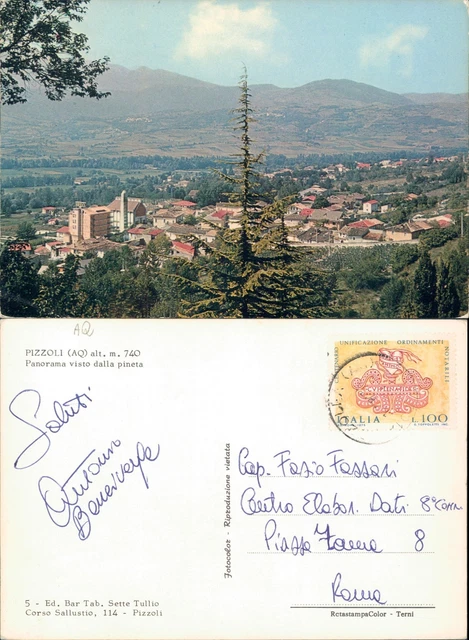 AQ
PIZZOLI (AQ) alt. m. 740
Panorama visto dalla pineta
UNIFICAZIONE ORDINAMENTI NOTARILI
ITALIA L.100
Saluti
Antonio
Benevento
Fotocolor - Riproduzione vietata
Cap. Fazio Fassari
Centro Elabor. Dati 8°Com
Piazza 8
Roma
5 - Ed. Bar Tab. Sette Tullio
Corso Sallustio, 114 - Pizzoli
RotastampaColor - Terni